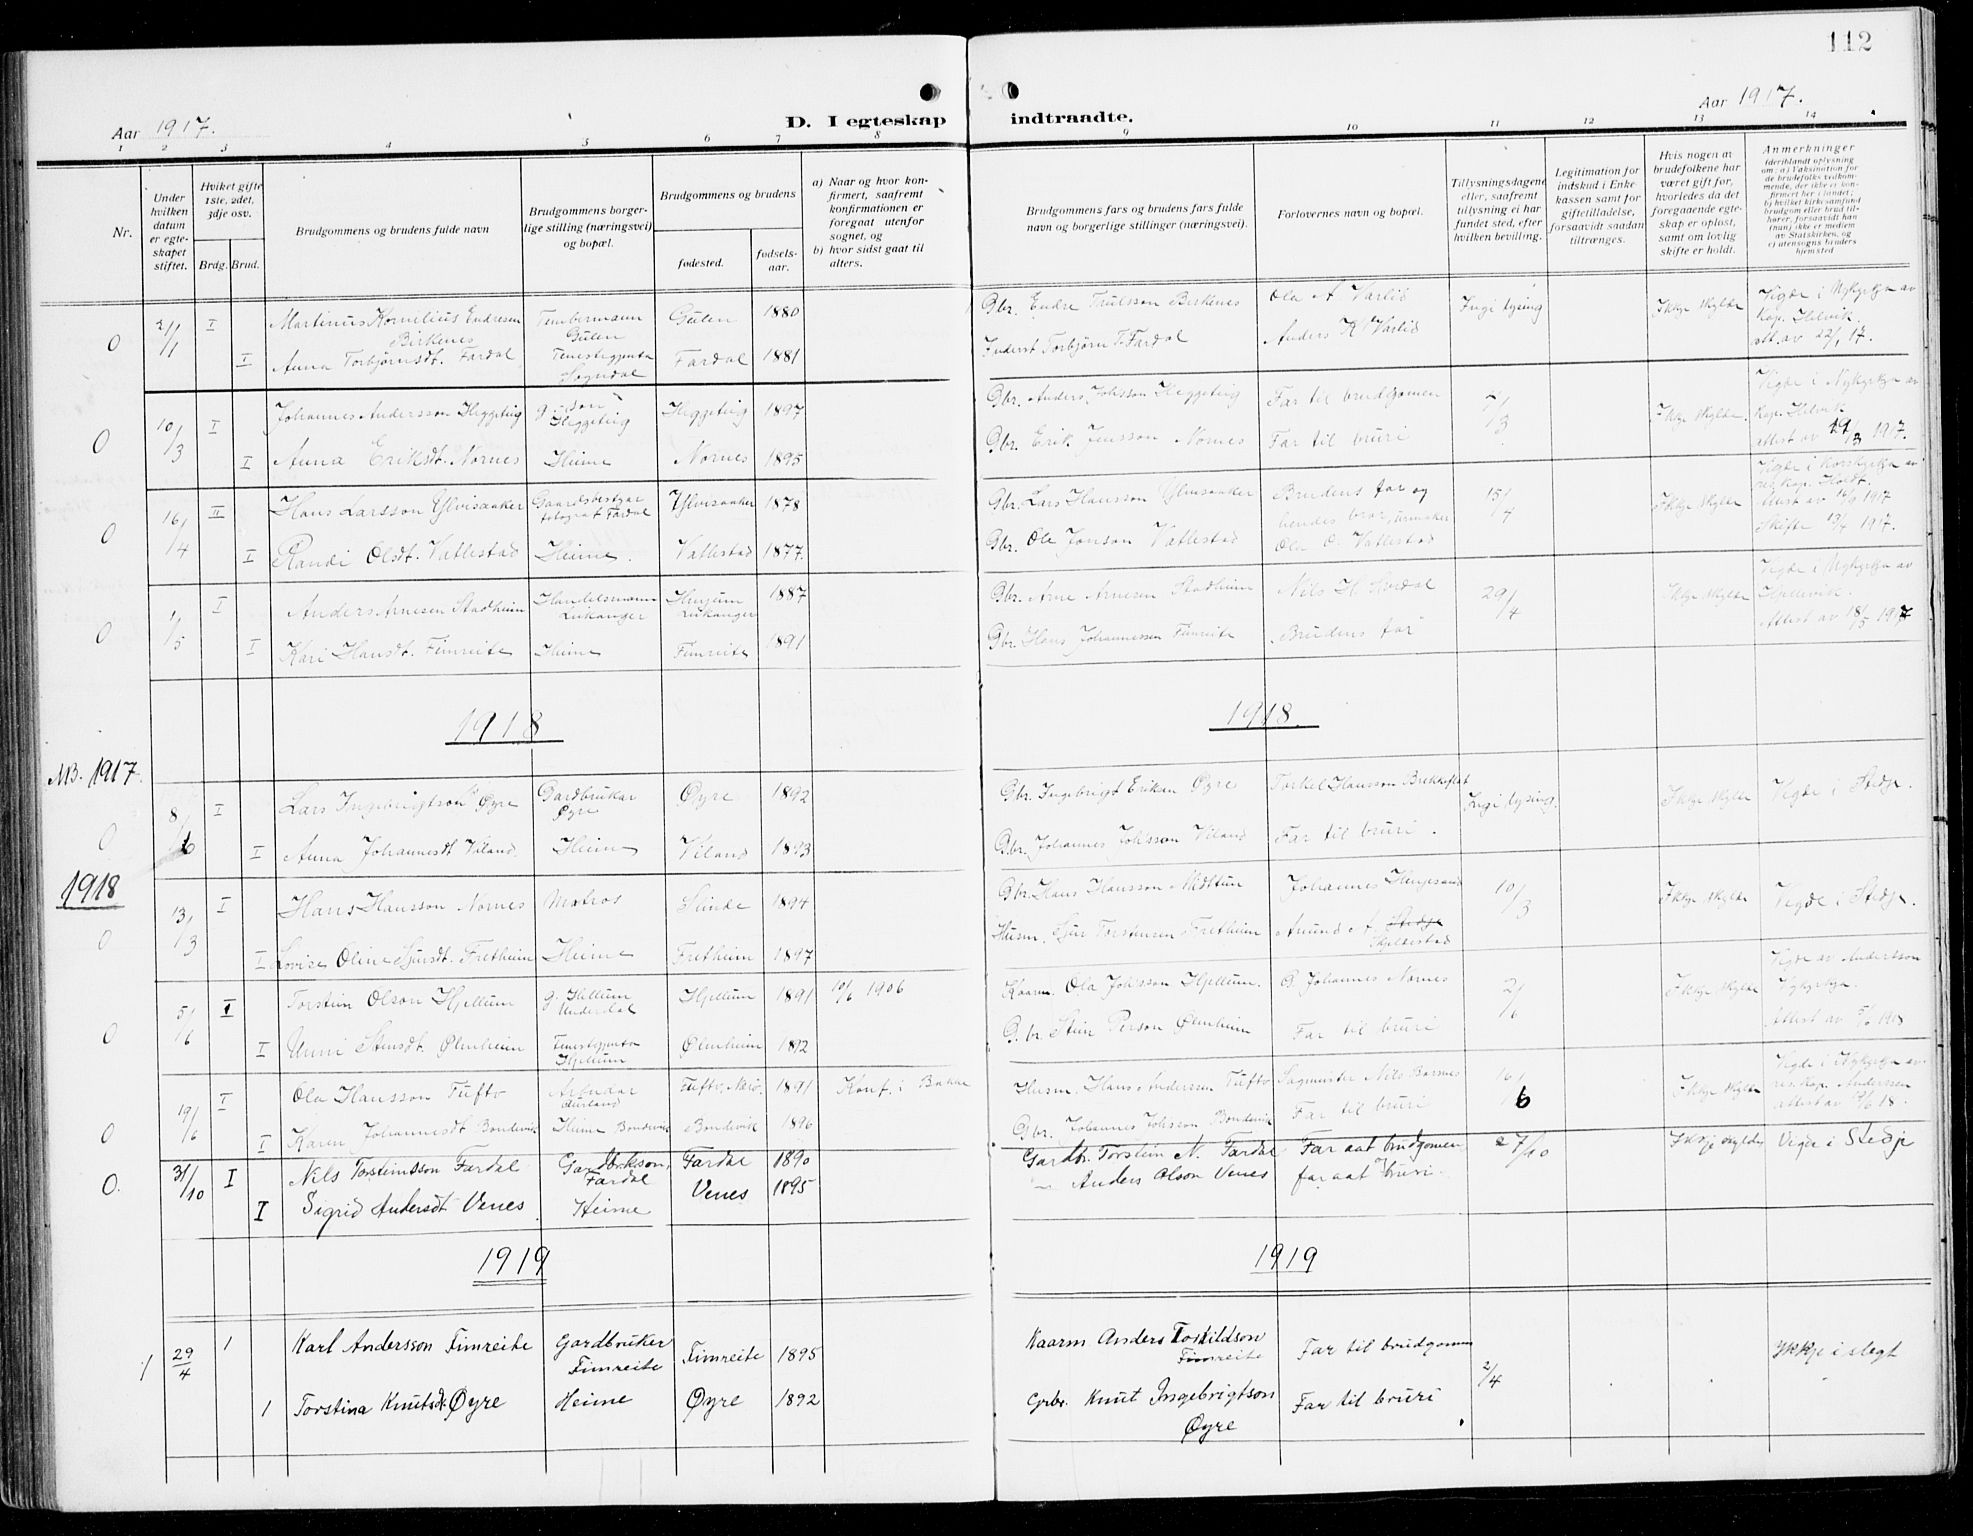 112
Aar 1917.
D. I egteskap
indtraadte.
Aar 1917.
1 2 3 4 5 6 7 8 9 10 11 12 13 14
Nr.
Under hvilken datum er egteskapet stiftet.
Hvilket gifte 1ste, 2det, 3dje osv.
Brdg. Brud.
Brudgommens og brudens fulde navn
Brudgommens borgerlige stilling (næringsvei) og bopæl.
Brudgommens og brudens
fødested.
fødselsaar.
a) Naar og hvor konfirmert, saafremt konfirmationen er foregaat utenfor sognet, og
b) hvor sidst gaat til alters.
Brudgommens fars og brudens fars fulde navn og borgerlige stillinger (næringsvei).
Forlovernes navn og bopæl.
Tillysningsdagene eller, saafremt tillysning ei har fundet sted, efter hvilken bevilling.
Legitimation for indskud i Enkekassen samt for giftetilladelse, forsaavidt saadan tiltrænges.
Hvis nogen av brudefolkene har været gift før, hvorledes da det foregaaende egteskap er opløst, samt om lovlig skifte er holdt.
Anmerkninger
(deriblandt oplysning om: a) Vaksination for de brudefolks vedkommende, der ikke er konfirmert her i landet; b) hvilket kirkesamfund brudgom eller brud tilhører, forsaavidt han (hun) ikke er medlem av Statskirken, og c) utensogns bruders hjemsted
0 2/1 I Martinus Kornelius Endresen Birkenes Tømbermann Gulen Gulen 1880 Gbr. Endre Trulsson Birkenes Ola A Varlid Ingi lysing Ikkje skylde Vigde i Nykyrkja av Kap. Helvik. att. av 22/1 17.
I Anna Torbjørnsdt. Fardal Tenestegjenta Sogndal Fardal 1881 Inderst Torbjørn T. Fardal Anders K Varlid
0 10/3 I Johannes Andersson Heggeteig g. son Heggeteig Heggeteig 1897 Gbr. Anders Johsson Heggeteig Far til brudgomen Ikkje skylde. Vigde i Nykyrkja av kap. Helvik attest av 19/3 1917.
I Anna Eriksdt. Nornes Heime Nornes 1895 Gbr. Erik Jensson Nornes Far til bruri
0 16/4 II Hans Larsson Ylvisaaker Gaardsbestyrar fotograf Fardal Ylvisaaker 1878 Gbr. Lars Hansson Ylvisaaker Brudens far og 15/4 Ikkje skylde Vigde i Korskyrkja av res. kap. Holdt.
I Randi Olsdt. Vatlestad Heime. Vatlestad 1877. Gbr. Ola Jonson Vatlestad hendes bror, urmaker Ola O. Vatlestad Skifte 13/4 1917.
0 1/5 I Anders Arnesen Stadheim Handelsmann Leikanger Henjum Leikanger 1887 Gbr. Arne Arnesen Stadheim 29/4 Ikkje skylde Vigde i Nykyrkja av Hjellevik. Attest av 18/5 1917
I Kari Hansdt. Fimreite Heime Fimreite 1891 Gbr. Hans Johannessen Fimreite Brudens far
1918
1918.
MB. 1917.
0 8/6 I Lars Ingebrigtson Øyre Gardbrukar Øyre Øyre 1892 Gbr. Ingebrigt Eriksen Øyre Torkel Hansson Brekkeflat Ingi lysing. Ikkje skylde Vigde i Stedje.
I Anna Johannesdt Veland. Heime Veland 1893 Gbr. Johannes Johsson Veland Far til bruri.
1918
0 13/3 I Hans Hansson Nornes Matros Slinde 1894 Gbr. Hans Hansson Midttun Johannes Henjesand 10/3 Ikkje skylde Vigde i Stedje.
I Lovise Oline Sjursdt. Fretheim Heime Fretheim 1897 Husm. Sjur Torsteinsen Fretheim Amund A. Stedje Skjeldestad
0 5/6 I Torstein Olson Hjellum g. Hjellum Underdal Hjellum 1891 10/6 1906 Kaarm. Ola Johsson Hjellum. G. Johannes Nornes 2/6 Ikkje skylde Vigde av Andersson Nykyrkja. Attest av 5/6 1918
I Unni Steinsdt. Ølmheim Tenestegjenta Hjellum Ølmheim 1892 G.br. Stein Person Ølmheim Far til bruri
0 19/6 I Ola Hansson Tufto Arbeidar Aurland 1891 Konf. i Bakka Husm. Hans Anderssen Tufto Sagmester Nils Barsnes 16/6 Ikkje skylde Vigde i Nykyrkja av res. kap. Anderssen attest av 19/6 18.
I Karen Johannesdt Bondevik Heime Bondevik Bondevik 1896 Gbr. Johannes Johsson Bondevik Far til bruri
0. 31/10 I Nils Torsteinsson Fardal Gardbrukson, Fardal Fardal 1890 Gardbr. Torstein N. Fardal Far aat brudgomen 27/10 Ikkje skylde Vigde i Stedje
I Sigrid Andersdt Venes Heime Venes 1895 — Anders Olson Venes far aat bruri.
1919
1919
1 29/4 1 Karl Andersson Fimreite Gardbruker Fimreite Fimreite 1895 Kaarm Anders Toskildson Fimreite Far til brudgomen 2/4 Ikkje i slegt
1 Torstina Knutsdt. Øyre Heime Øyre 1892 Grbr. Knut Ingebrigtson Øyre Far til bruri